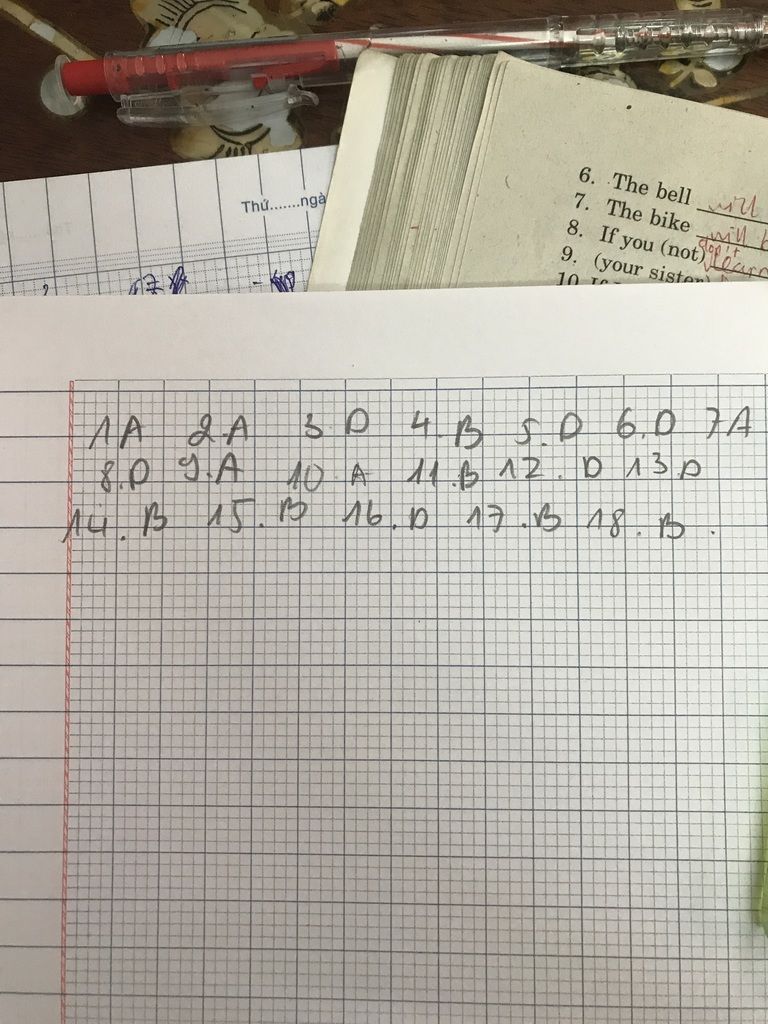 Thứ.......ngà
6. The bell will
7. The bike will b
8. If you (not) don't learn
9. (your sister)
10.
1A 2.A 3 D 4.B 5.D 6.D 7A
8.D 9.A 10.A 11.B 12.D 13D
14.B 15.B 16.D 17.B 18.B.